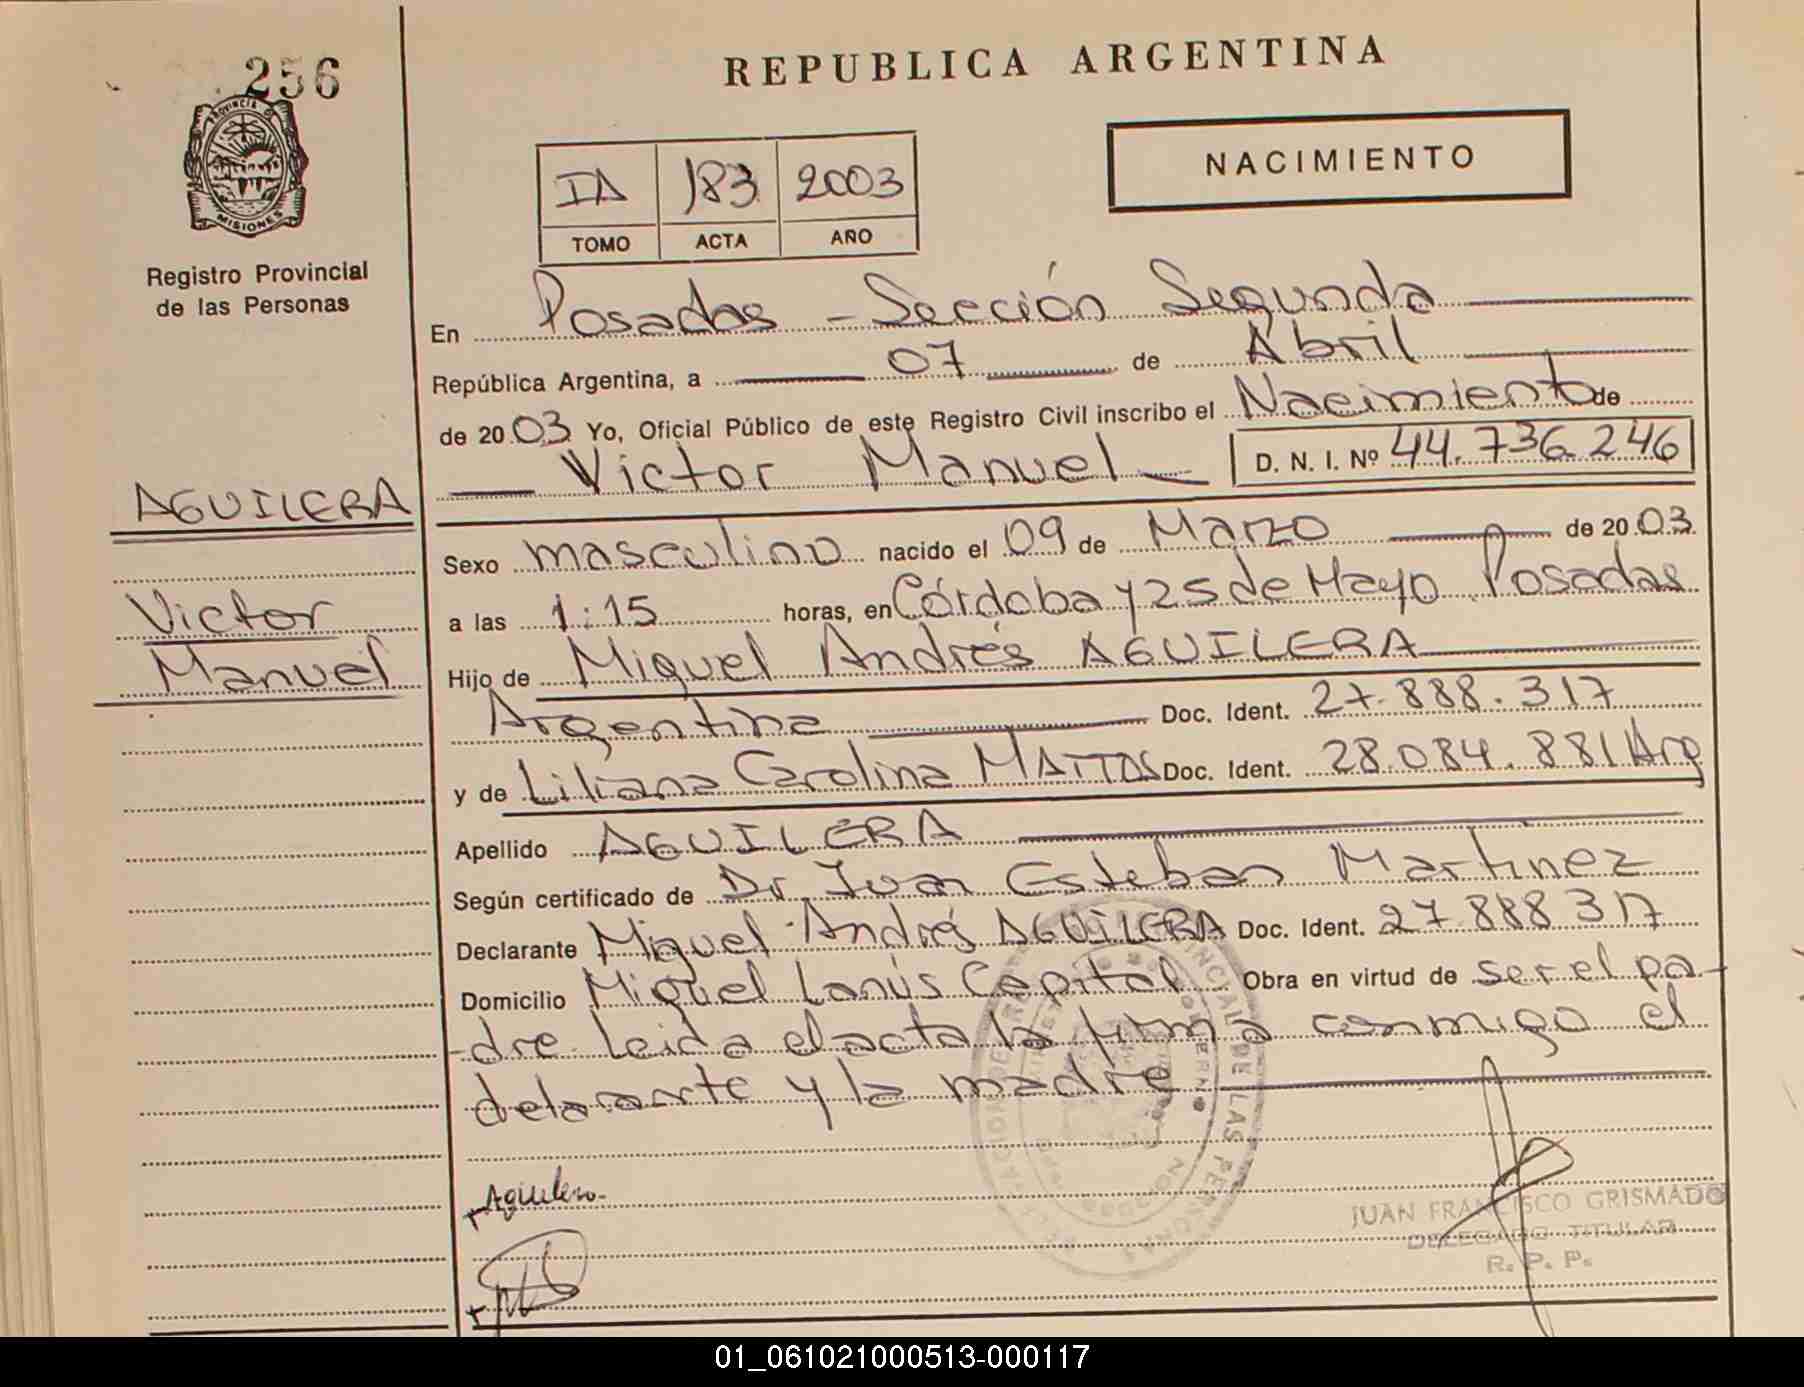 256
REPUBLICA ARGENTINA
PROVINCIA DE
MISIONES
Registro Provincial
de las Personas
NACIMIENTO
IA 183 2003
TOMO ACTA AÑO
En Posadas - Sección Segunda
República Argentina, a 07 de Abril
de 2003 Yo, Oficial Público de este Registro Civil inscribo el Nacimiento de
Victor Manuel D. N. I. Nº 44.736.246
AGUILERA
Victor
Manuel
Sexo masculino nacido el 09 de Marzo de 2003
a las 1:15 horas, en Córdoba y 25 de Mayo Posadas
Hijo de Miguel Andrés AGUILERA
Argentina Doc. Ident. 27.888.317
y de Liliana Carolina MATTOS Doc. Ident. 28.084.881 Arg
Apellido AGUILERA
Según certificado de Dr Juan Esteban Martinez
Declarante Miguel Andrés AGUILERA Doc. Ident. 27.888.317
Domicilio Miguel Lanús Capital Obra en virtud de ser el pa-
dre leida el acta la firma conmigo el
delarante y la madre
Aguilera
JUAN FRANCISCO GRISMADO
DELEGADO TITULAR
R. P. P.
01_061021000513-000117